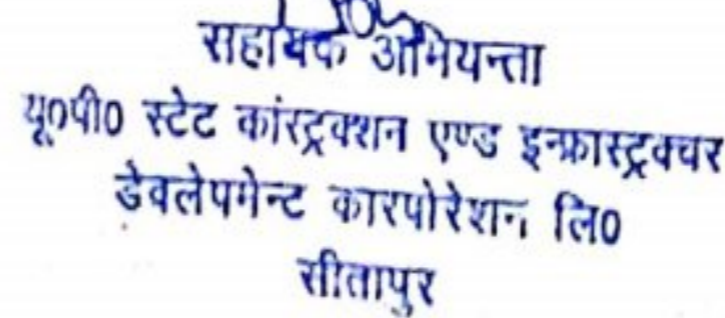 सहायक अभियन्ता
यू०पी० स्टेट कांस्ट्रक्शन एण्ड इन्फ्रास्ट्रक्चर
डेवलेपमेन्ट कारपोरेशन लि०
सीतापुर